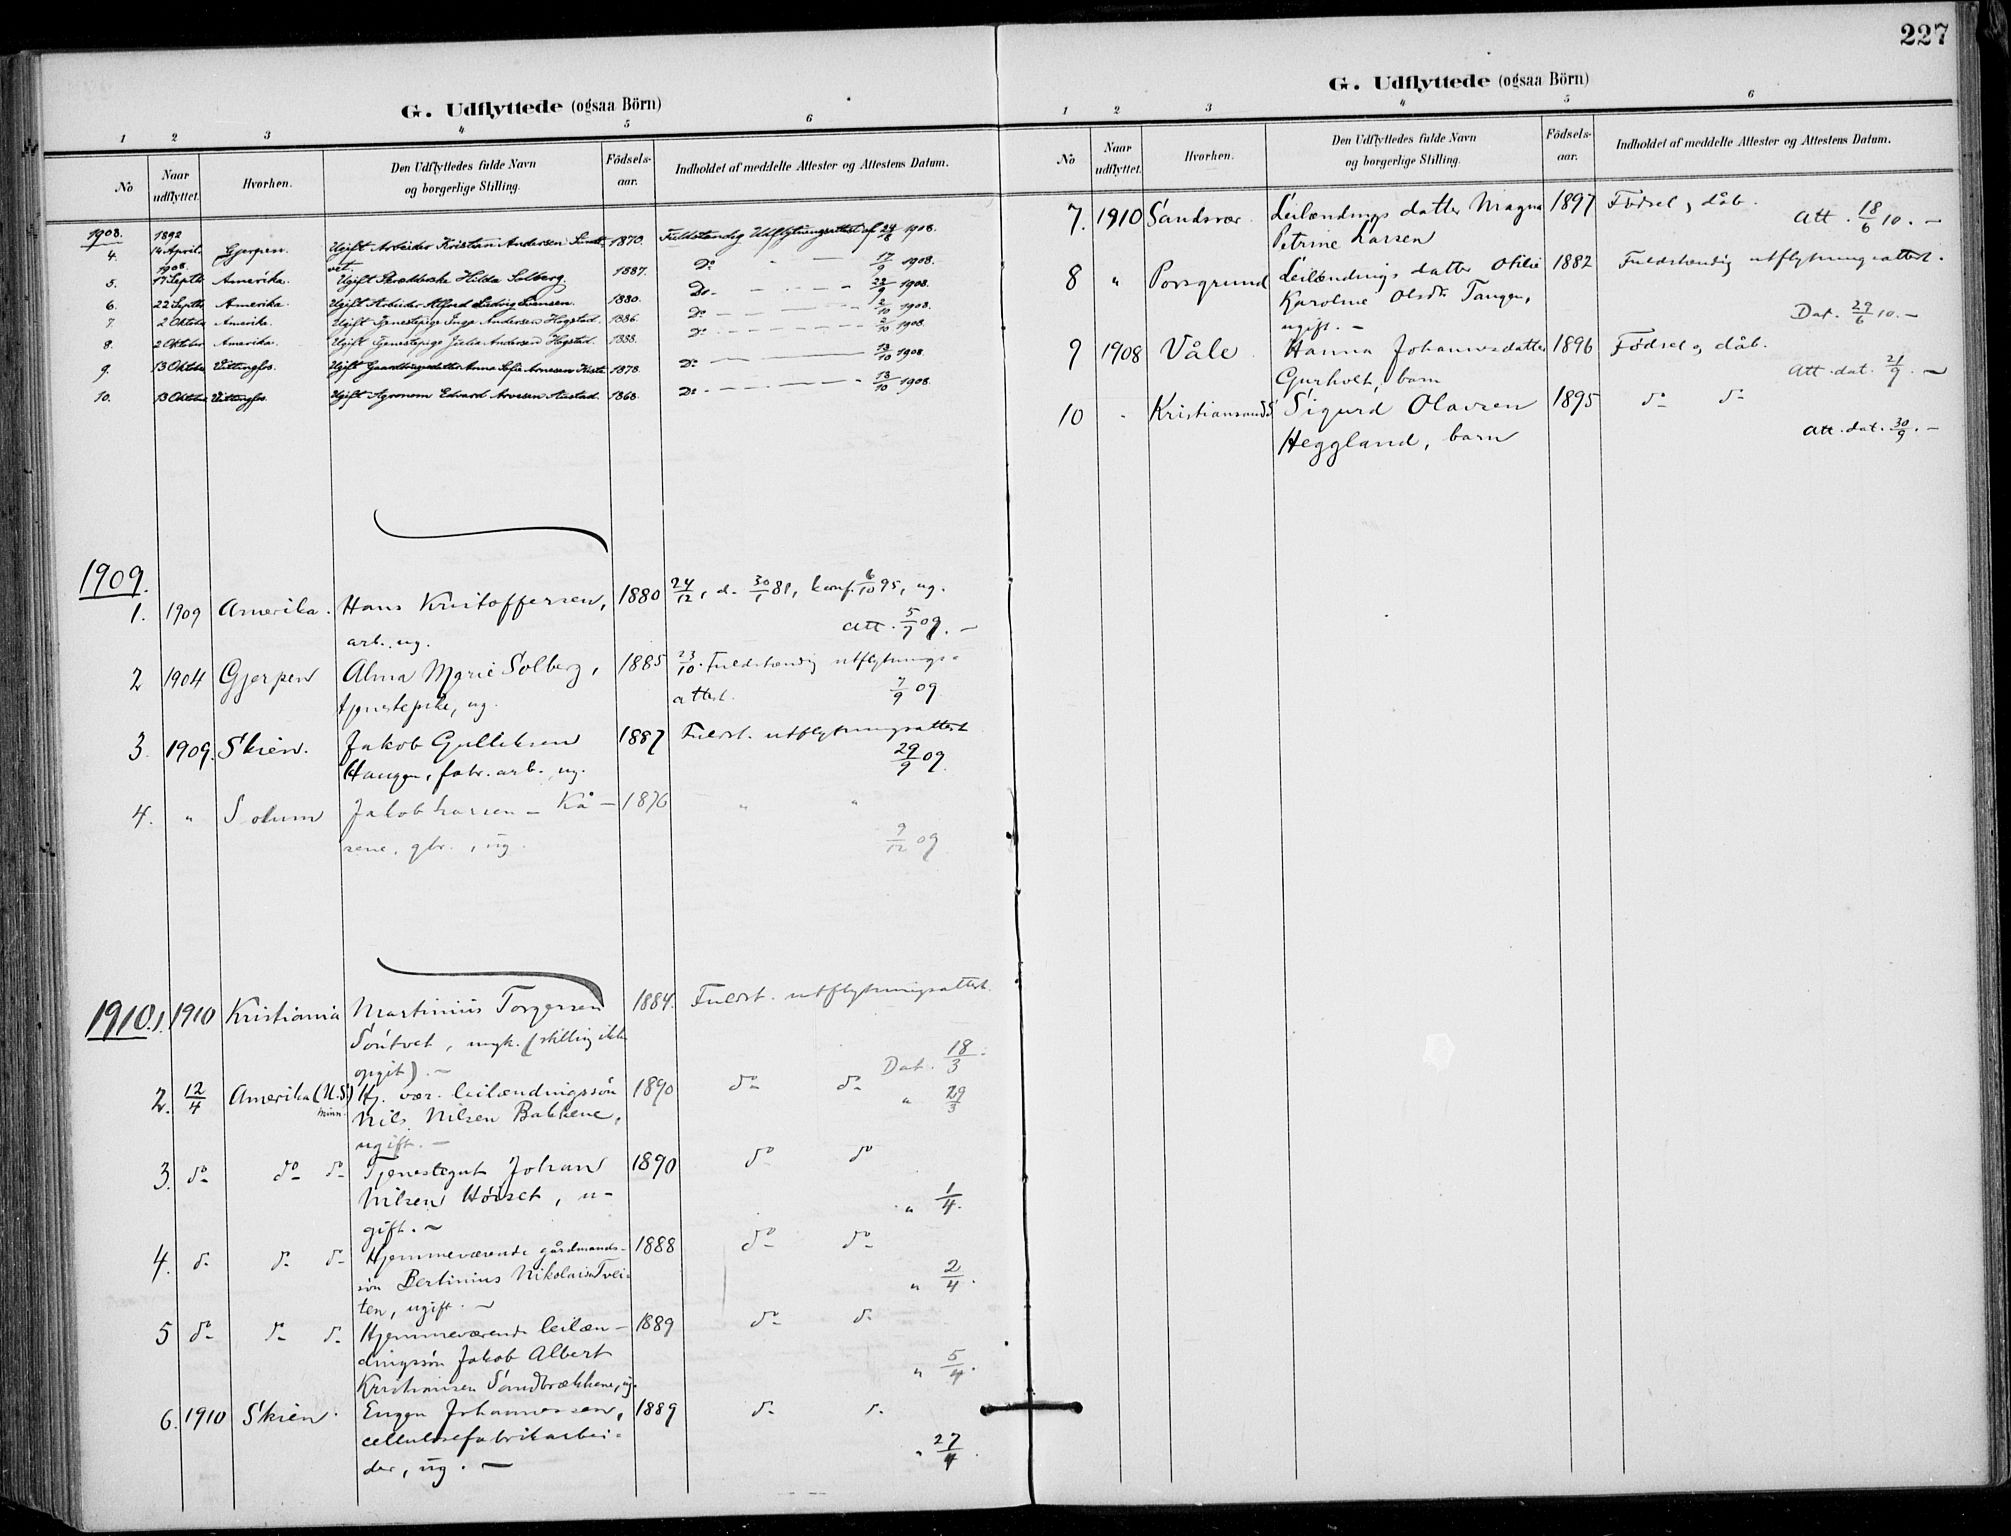 G. Udflyttede (ogsaa Börn)
1 2 3 4 5 6
No Naar udflyttet. Hvorhen. Den Udflyttedes fulde Navn og borgerlige Stilling. Födsels-aar. Indholdet af meddelte Attester og Attestens Datum.
1908.
4. 1892 14 April. Gjerpen. Ugift Arbeider Kristian Andersen 1870. Fuldstændig Udflytningsattest af 24/8 1908.
5. 1908. 17 Septb. Amerika. Ugift Hilda Solberg 1887. Do - 17/9 1908.
6. 22 Septb. Amerika. Ugift Arbeider Alfred Ludvig 1880. Do - - - - 22/9 1908.
7. 2 Oktober Amerika. Ugift Tjenestepige Inga Andersen Hogstad. 1886. Do - - - - 2/10 1908.
8. 2 Oktober Amerika. Ugift Tjenestepige Julia Andersen Hogstad. 1888. Do - - - - 2/10 1908.
9. 13 Oktober Vittingfos. Ugift Anna Sofie 1878. Do - - - 13/10 1908.
10. 13 Oktober Vittingfos. Ugift Agronom Edvard 1868. Do - - - - 13/10 1908.
1909.
1. 1909 Amerika. Hans Kristoffersen, 1880 24/12, d. 30/1 81, konf. 6/10 95, ug.
arb. ug. Att. 5/7 09. -
2 1904 Gjerpen Alma Marie Solberg, 1885 23/10. Fuldstændig utflytnings-
tjenestepike, ug. attest. 7/9 09.
3. 1909. Skien. Jakob Gulliksen 1887 Fuldst. utflytningsattest
Haugen, fabr. arb. ug. 29/9 09.
4. " Solum Jakob Larsen - Kå- 1876 " "
sene, gbr., ug. 9/12 09
1910. 1. 1910 Kristiania Martinius Torgersen 1884. Fuldst. utflytningsattest.
Söntvet, ungk. (stilling ikke
opgit). - Dat. 18/3.
2. 12/4 Amerika (U.S.) Minn. Hj. vær. leilændingssön 1890 do do " 29/3
Nils Nilsen Bakkene,
ugift. -
3. do do do Tjenestegut Johan 1890 do do
Nilsen Höiset, u-
gift. - " 1/4.
4. do do do Hjemmeværende gårdmands- 1888 do do
sön Bertinius Nikolaisen Tvei-
ten, ugift. - " 2/4.
5 do do do Hjemmeværende leilæn- 1889 do do
dingssön Jakob Albert
Kristiansen Sandbrækkene, ug. " 5/4.
6. 1910 Skien. Eugen Johannessen, 1889 do do
cellulosefabrikarbei-
der, ug. - " 27/4.
227
G. Udflyttede (ogsaa Börn)
1 2 3 4 5 6
No Naar udflyttet. Hvorhen. Den Udflyttedes fulde Navn og borgerlige Stilling. Födsels-aar. Indholdet af meddelte Attester og Attestens Datum.
7. 1910 Sandsvær. Leilændings datter Magna 1897 Födsel og dåb.
Petrine Larsen Att. 18/6 10. -
8 " Porsgrund Leilændings datter Otilie 1882 Fuldstændig utflytningsattest.
Karoline Olsdtr Tangen,
ugift. - Dat. 29/6 10. -
9 1908 Våle. Hanna Johannesdatter 1896 Födsel og dåb.
Gurholt, barn Att. dat. 21/9. -
10 " Kristiansand S. Sigurd Olavsen 1895 do do
Heggland, barn Att. dat. 30/9. -